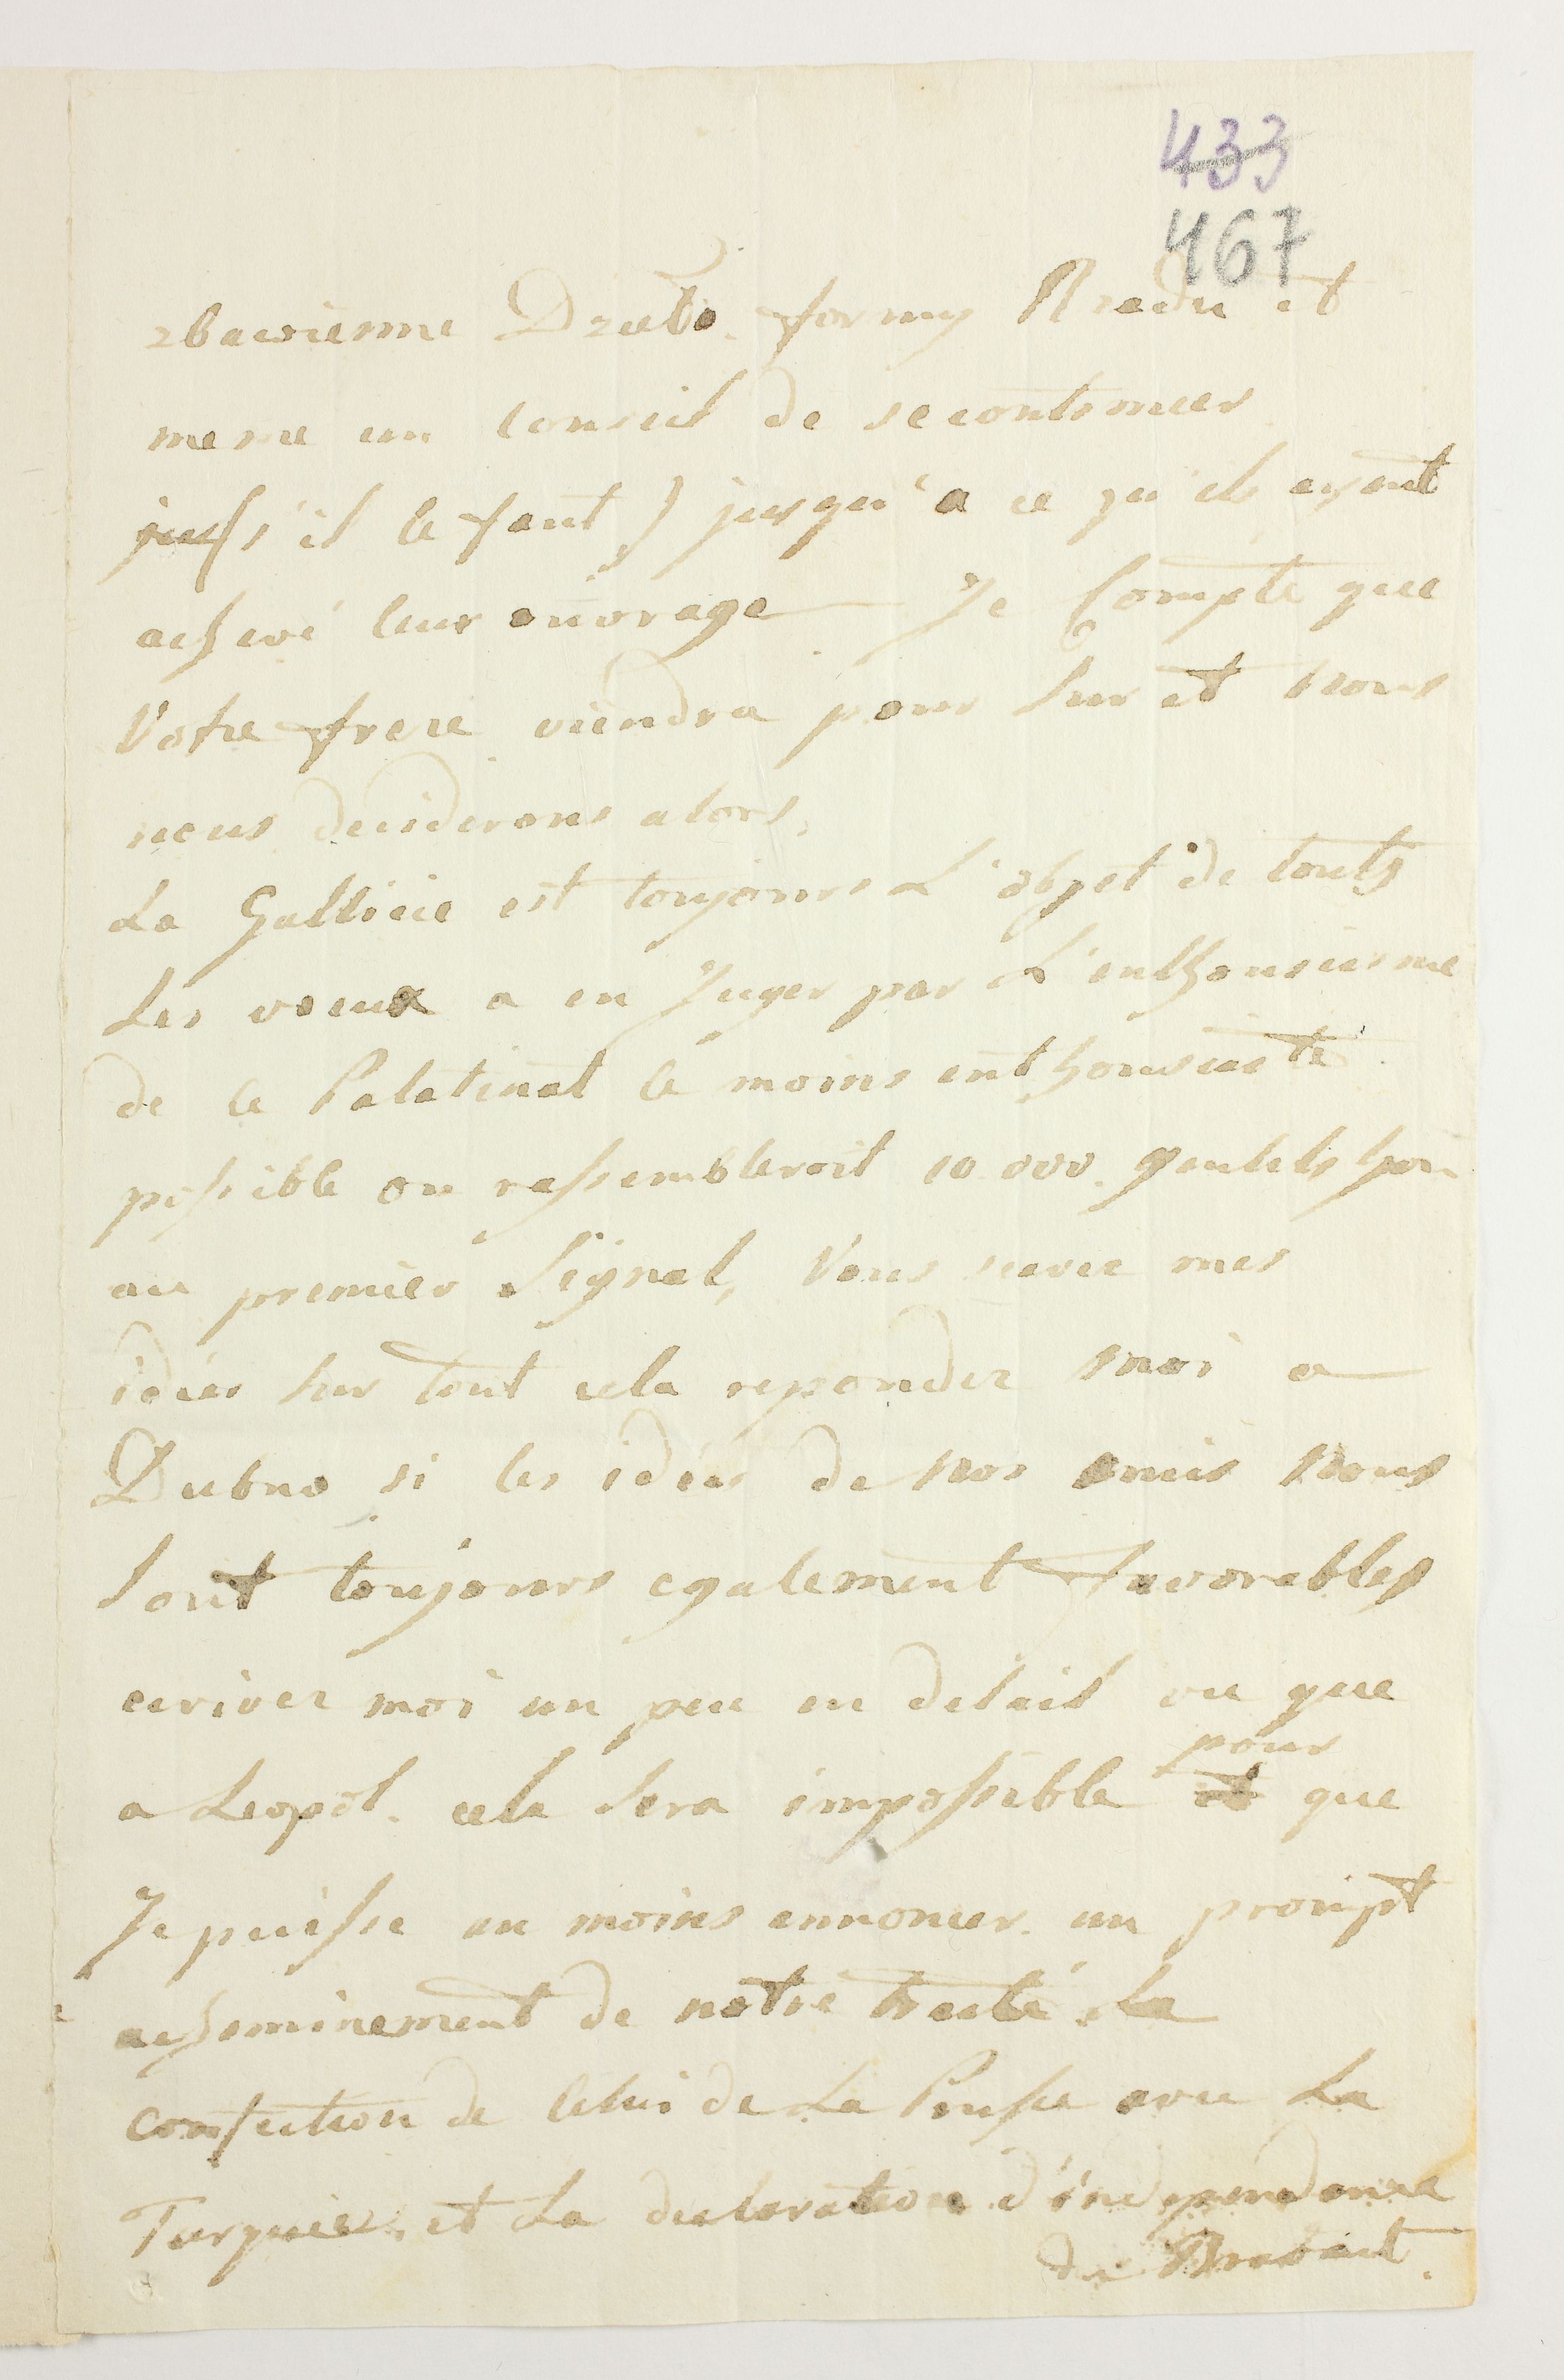 433
467
zbawienne Dzieło formy Rządu et
meme un Conseil de se continuer
jus s'il le faut) jusqu'a ce qu'ils ayent
achevé leur ouvrage Je Compte que
Votre frere viendra pour Sur et nous
nous deciderons alors,
La Gallicie est toujours L'objet de touts
Les voeux a en Juger par L'enthousiasme
de ce Palatinat le moins enthousiaste
possible on rassembleroit 10.000. gentelshom
au premier Signal, Vous savez mes
idées sur tout cela repondez moi a
Dubno si les idées de nos amis nous
Sont toujours egalement favorables
ecrivez moi un peu en detail vu que
a Leopol. cela Sera impossible pour que
Je puisse au moins annoncer un prompt
acheminement de notre traité La
confection de Celui de La Prusse avec La
Turquie, et La declaration d'independance
de Brabant.